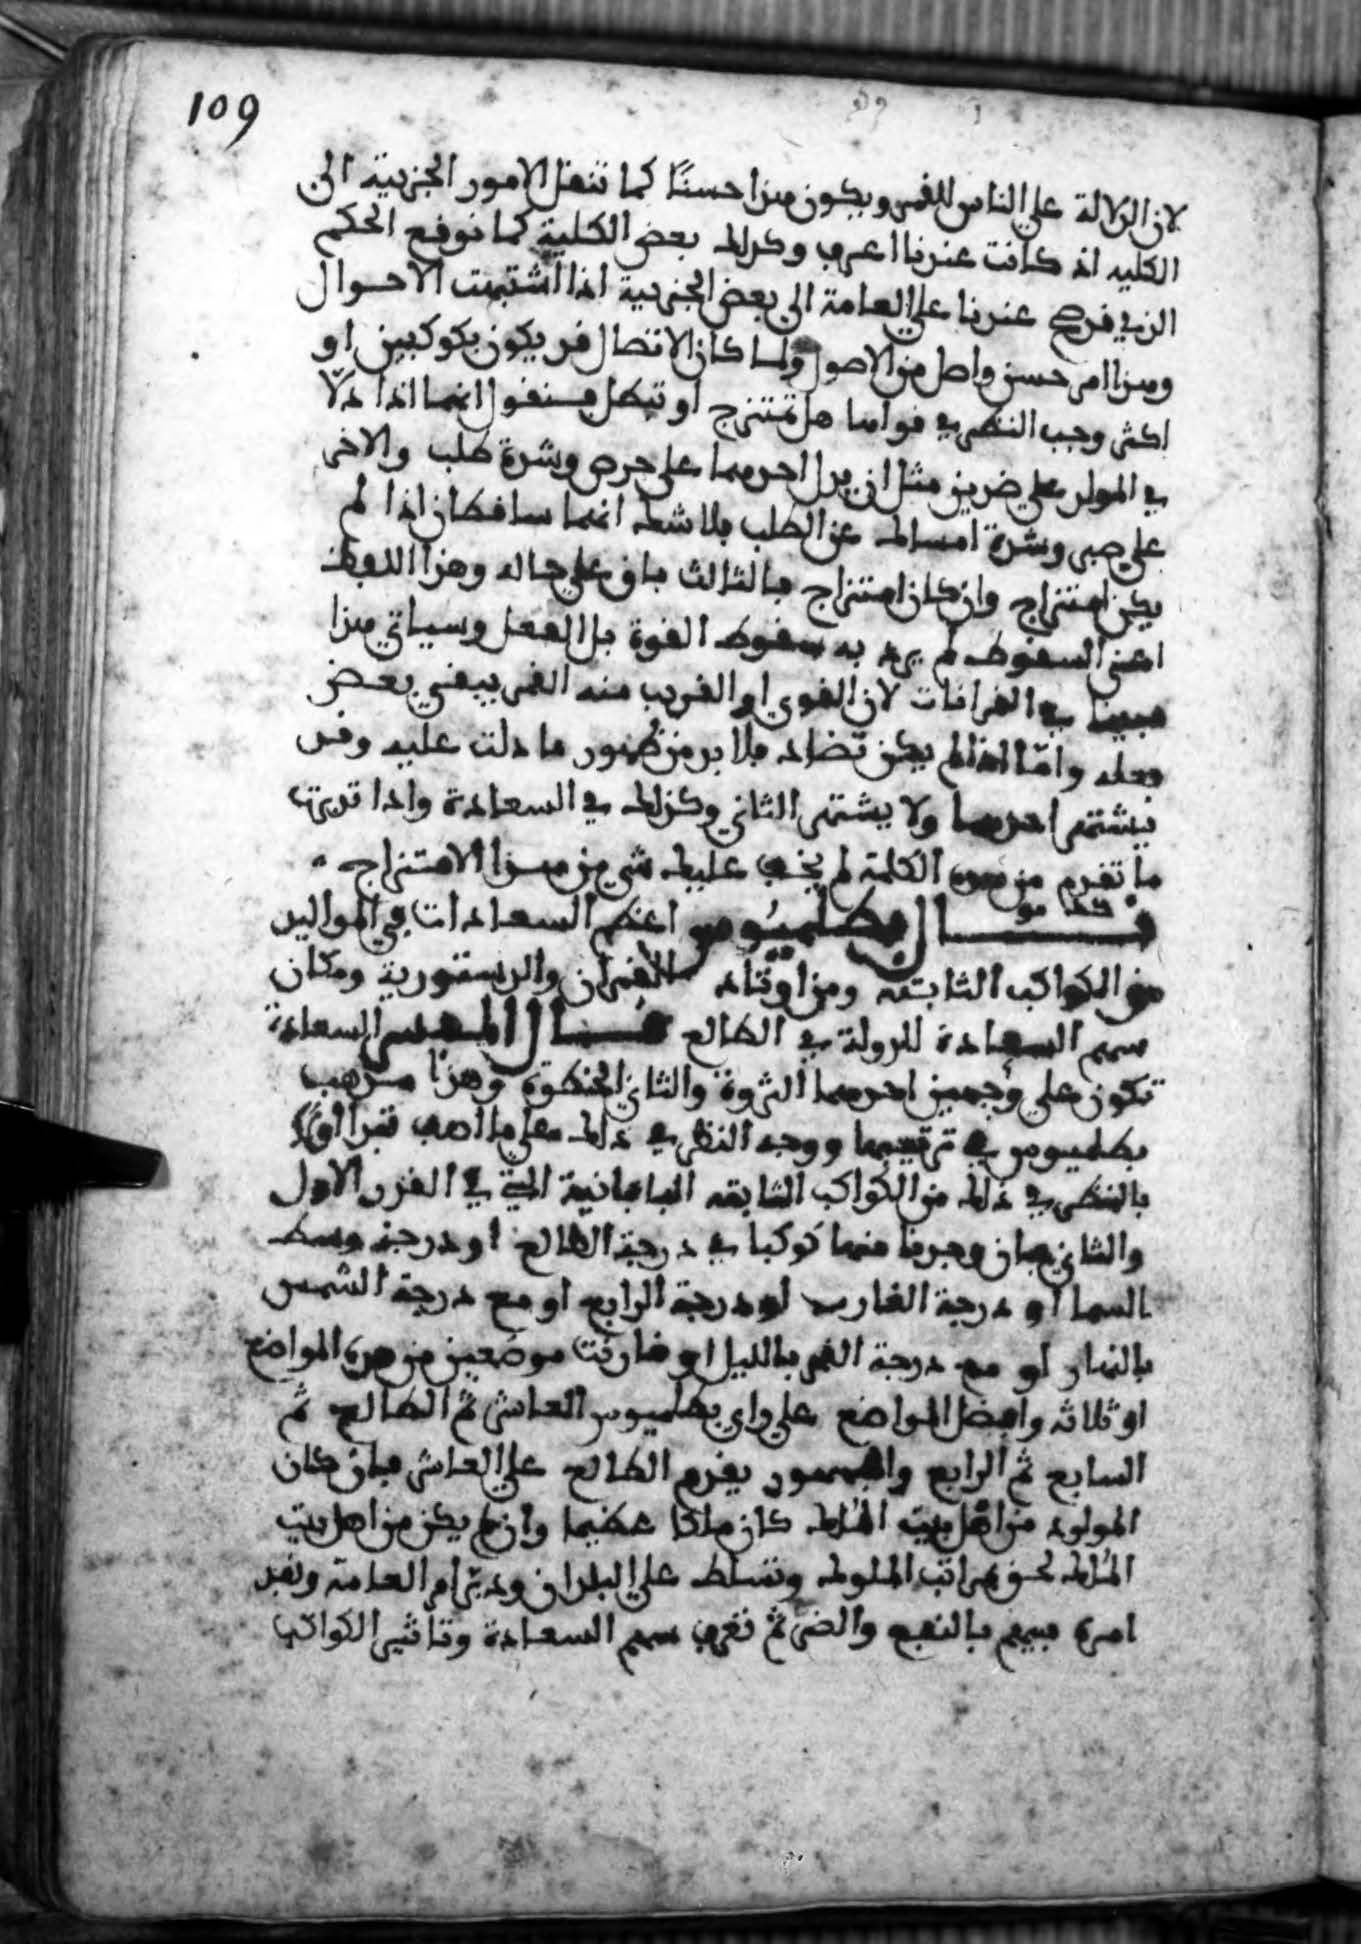 109
لان الدلالة على الناس للقمر ويكون هذا حسنًا كما تنقل الامور الجزءية الى
الكليه اذ كانت عندنا اعرف وكذلك بعض الكلية كما نوقع الحكم
الذي عندنا على العامة الى بعض الجزءية اذا اشتبهت الاحوال
وهذا امر حسن واصل من الاصول ولما كان الاتصال قد يكون بكوكبين او
اكثر وجب النظر في قواها هل تمتزج او تبطل فنقول انهما اذا دلّا
في المولد على ضدين مثل ان يدل احدهما على حرص وشدة طلب والاخر
على وشدة امساك عن الطلب فلا شك انهما ساقطان اذا لم
يكن امتزاج وان كان امتزاج فالثالث باق على حاله وهذا اللفظ
اعني السقوط لم يرد به سقوط القوة بل الفعل وسياتي هذا
مبينا في القرانات لان القوي او القريب منه القمر يبقي بعض
فعله وامّا اذا لم يكن تضاد فلا بد من ظهور ما دلت عليه وقد
يشتهر احدهما ولا يشتهر الثاني وكذلك في السعادة واذا تدبرت
ما تقدم من هذه الكلمة لم يخف عليك شي من هذا الامتزاج
قال بطلميوس اعظم السعادات في المواليد
من الكواكب الثابته ومن اوتاد القران والدستورية ومكان
سهم السعادة للدولة في الطالع قال المفسر السعادة
تكون على وجهين احدهما الثروة والثاني الحظوة وهذا مذهب
بطلميوس في ترتيبهما ووجه النظر في ذلك على ما اصف تبدا اوّلا
بالنظر في ذلك من الكواكب الثابته البابانية التي في القدر الاول
والثاني فان وجدنا منها كوكبا في درجة الطالع او درجة وسط
السما او درجة الغارب او درجة الرابع او مع درجة الشمس
بالنهار او مع درجة القمر بالليل او موضعين من هذه المواضع
او ثلاثه وافضل المواضع على راي بطلميوس العاشر ثم الطالع ثم
السابع ثم الرابع والجمهور يقدم الطالع على العاشر فان كان
المولود من اهل بيت الملك كان ملكا عظيما وان لم يكن من اهل بيت
الملك لحق مراتب الملوك وتسلط على البلدان ودبّر امر العامة ونفذ
امره فيهم بالنفع والضر ثم تعرف سهم السعادة وتاثير الكواكب